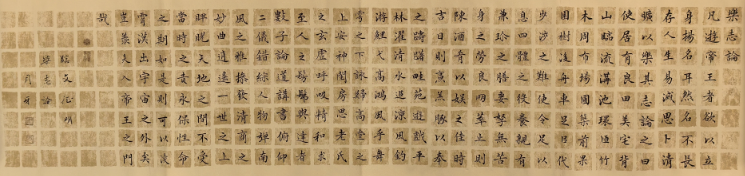 樂志論
凡遊帝王者欲以立
身揚名耳然名不長
存人生易滅思卜清
曠以樂其志論之曰
使居有良田美宅背
山臨流溝池環匝竹
木周布場圃築前果
園樹後舟車足以代
步涉之難使令足以
息四體之役養親有
兼珍之膳妻孥無苦
身之勞良朋萃止則
陳酒肴以娛之佳時
吉日則烹羔豚以奉
之躊躇畦苑遊戲平
林濯清水追涼風釣
游鯉弋高鴻風乎舞
雩之下詠歸高堂之
上安神閨房思老氏
之玄虛呼吸精和求
至人之髣髴與達者
數子論道講書俯仰
二儀錯綜人物彈南
風之雅操發清商之
妙曲逍遙一世之上
睥睨天地之間不受
當時之責永保性命
之期如是則可以凌
霄漢出宇宙之外矣
豈羨夫入帝王之門
哉